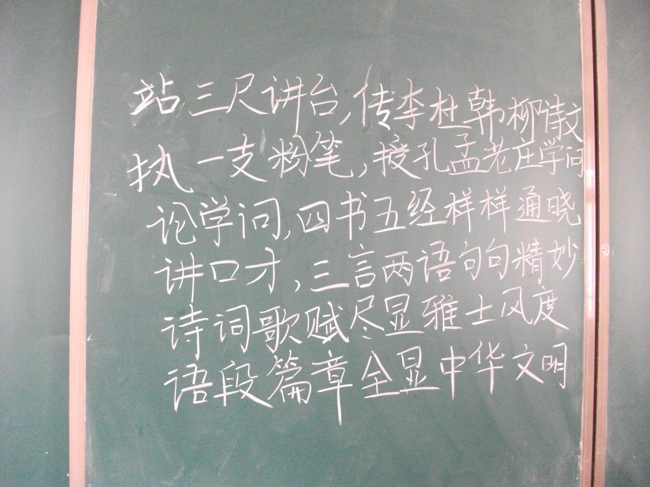 站三尺讲台,传李杜韩柳诗文
执一支粉笔,授孔孟老庄学问
论学问,四书五经样样通晓
讲口才,三言两语句句精妙
诗词歌赋尽显雅士风度
语段篇章全显中华文明